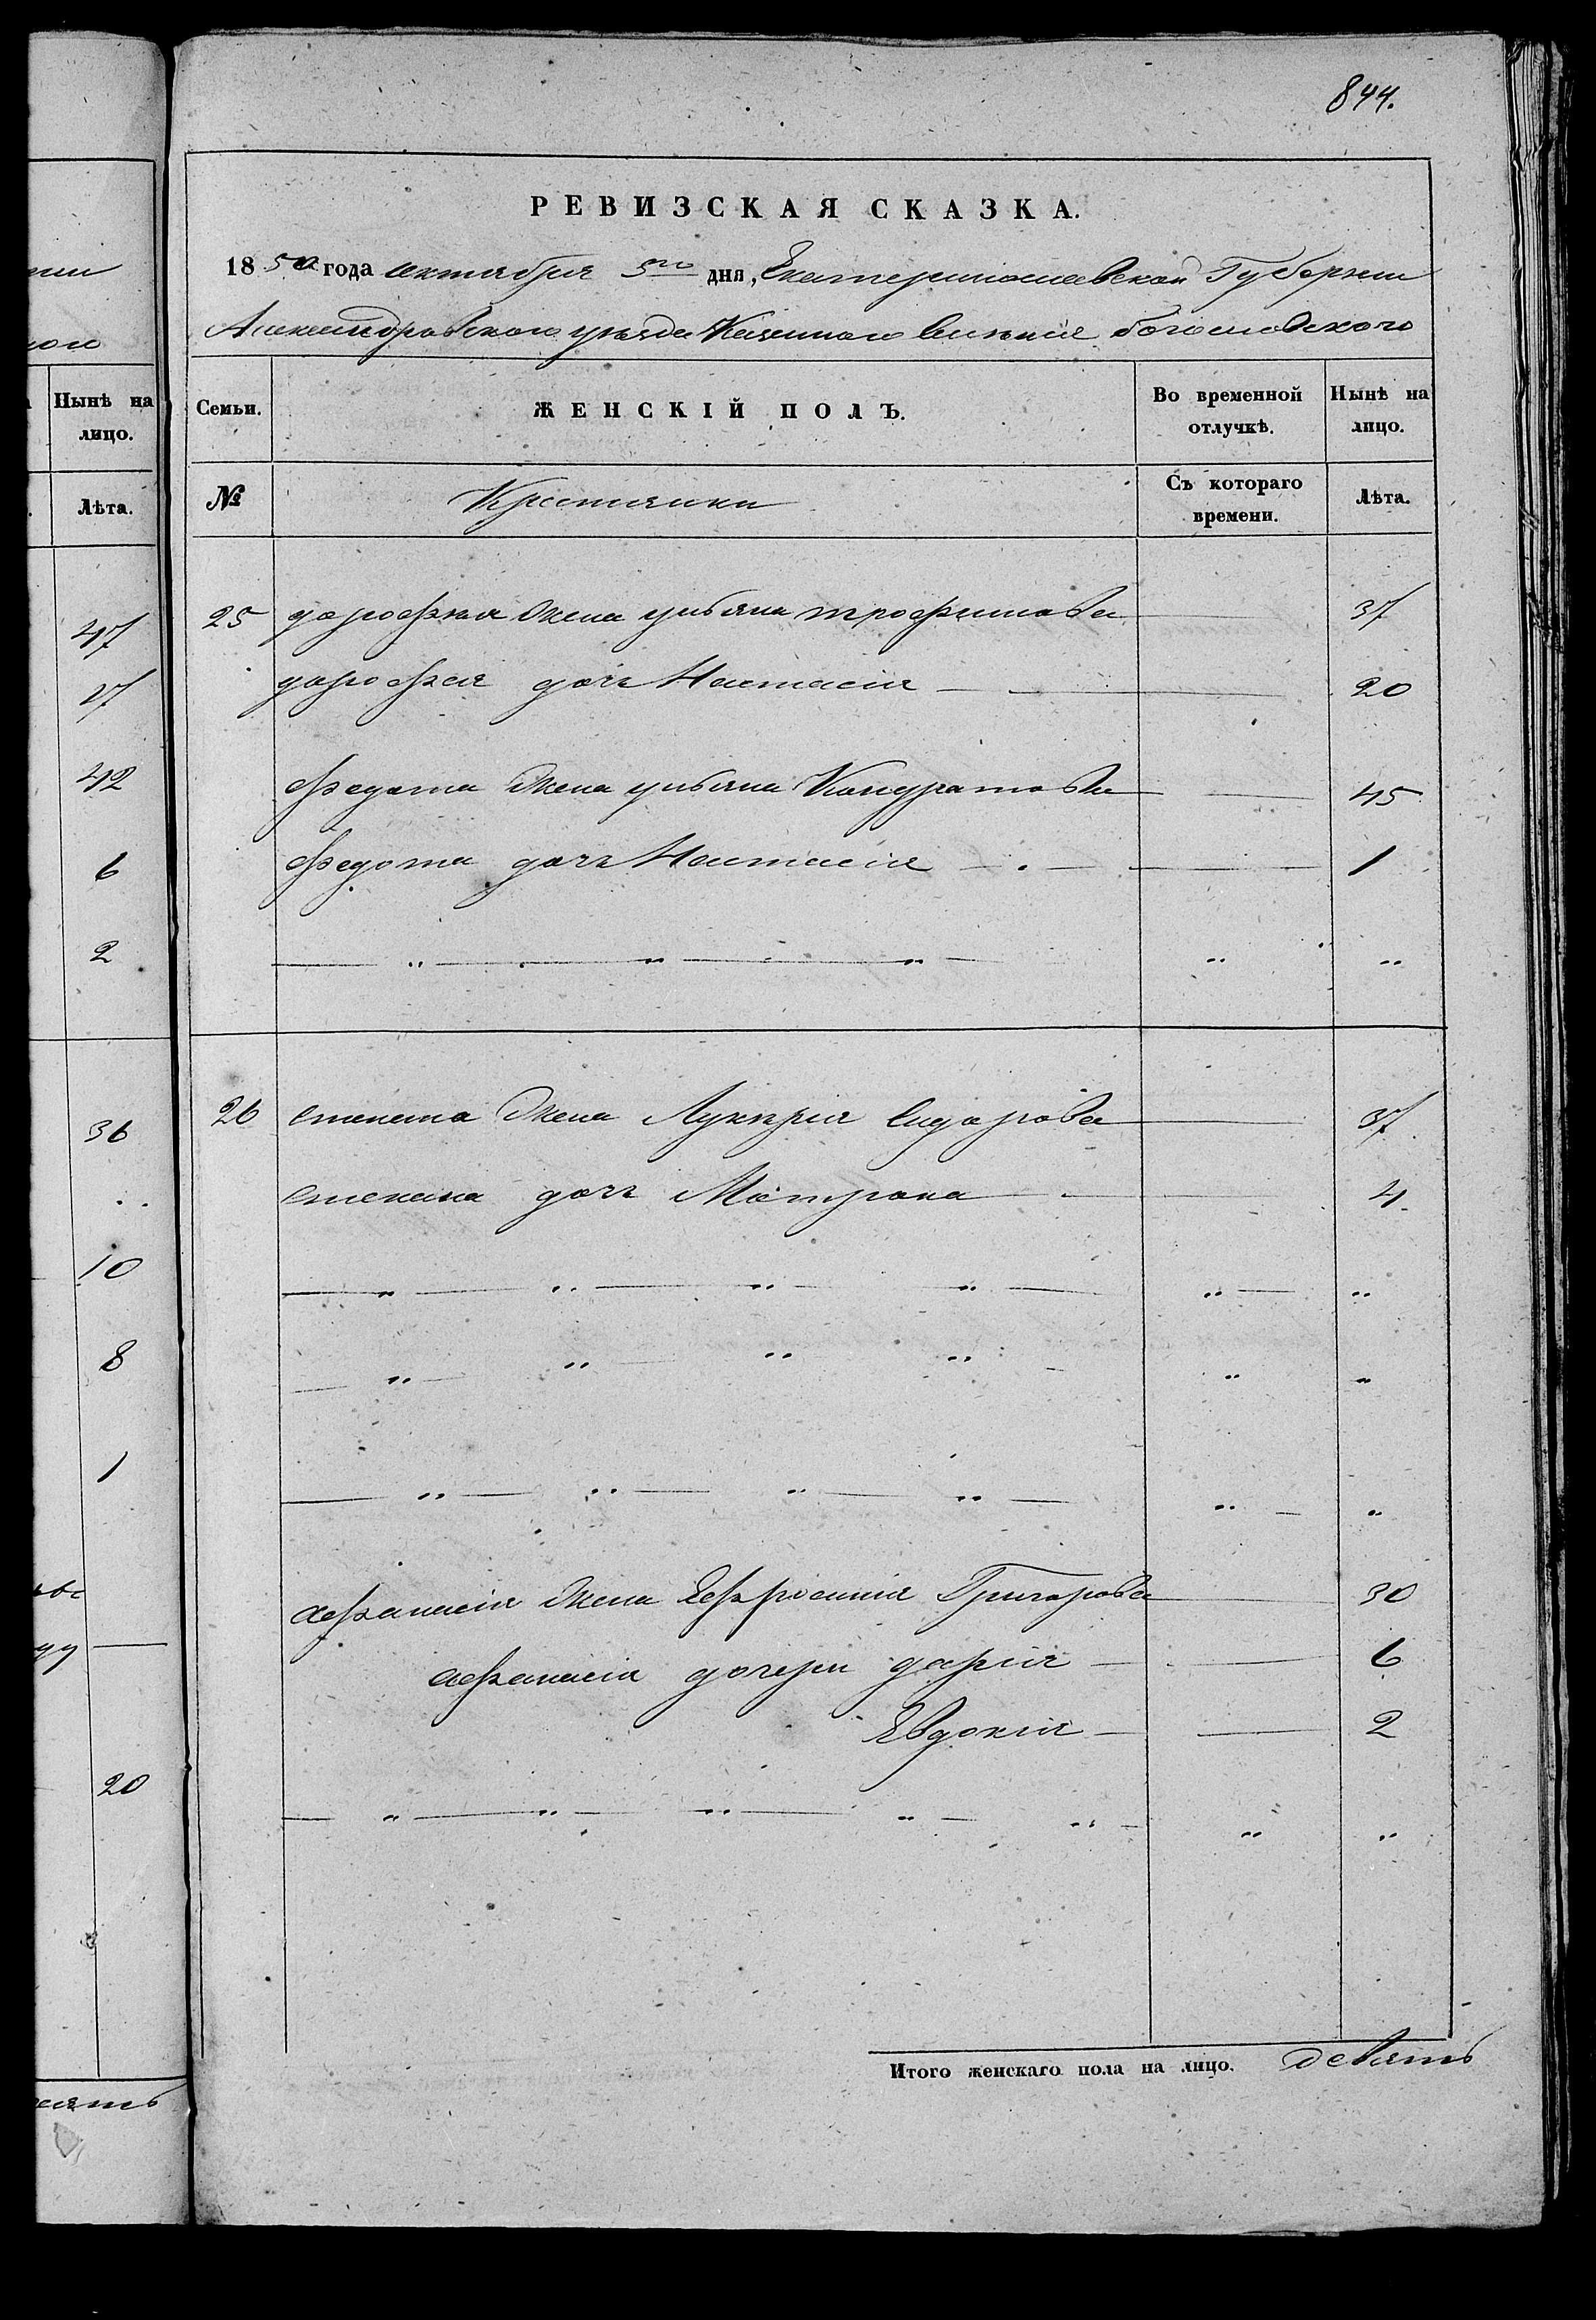 844.
РЕВИЗСКАЯ СКАЗКА.
1850 года октября 5го дня, Екатеринославской Губернии
Александровского уезда Казенного селенія богословского
Нынѣ на лицо.
Семьи. ЖЕНСКІЙ ПОЛЪ. Во временной отлучкѣ. Нынѣ на лицо.
Лѣта.
№ Крестянки Съ котораго времени. Лѣта.
47
27
42
6
2
36
10
8
1
20
25 дорофея жена ульяна трофимова 37
дорофея дочь Настасія 20
федота жена ульяна Кондратова 45
федота дочь Настасія 1
26 степана жена Лукерія Сидорова 37
степана дочь Матрона 4
афанасія жена Ефросинія Григорова 30
афанасія дочери дарія 6
Евдокія 2
Итого женскаго пола на лицо. девять